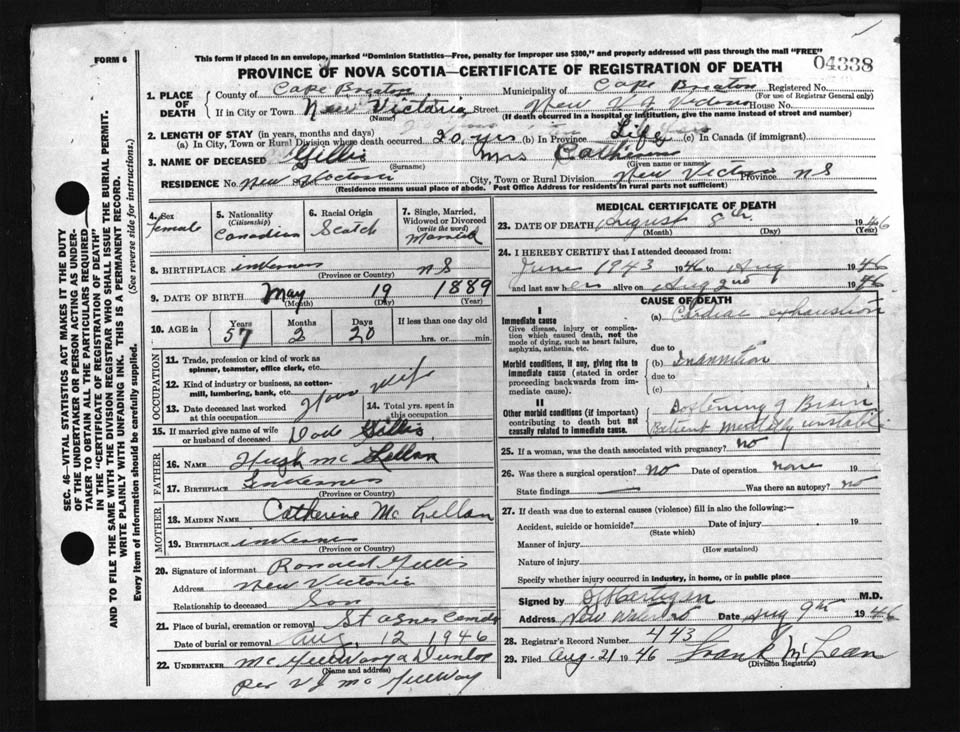 FORM 6
This form if placed in an envelope, marked "Dominion Statistics—Free, penalty for improper use $300," and properly addressed will pass through the mail "FREE"
PROVINCE OF NOVA SCOTIA—CERTIFICATE OF REGISTRATION OF DEATH
04338
1. PLACE OF DEATH
County of Cape Breton Municipality of Cape Breton Registered No.
(For use of Registrar General only)
If in City or Town New Victoria Street New House No.
(Name) (If death occurred in a hospital or institution, give the name instead of street and number)
2. LENGTH OF STAY (in years, months and days)
(a) In City, Town or Rural Division where death occurred 20 yrs (b) In Province Life (c) In Canada (if immigrant)
3. NAME OF DECEASED Gillis Mrs
(Surname) (Given name or names)
RESIDENCE No. New City, Town or Rural Division New Victoria Province NS
(Residence means usual place of abode. Post Office Address for residents in rural parts not sufficient)
4. Sex female
5. Nationality (Citizenship) Canadian
6. Racial Origin Scotch
7. Single, Married, Widowed or Divorced (write the word) Married
8. BIRTHPLACE Inverness NS
(Province or Country)
9. DATE OF BIRTH May 19 1889
(Month) (Day) (Year)
10. AGE in Years 57 Months 2 Days 20 If less than one day old hrs. or min.
OCCUPATION
11. Trade, profession or kind of work as spinner, teamster, office clerk, etc.
12. Kind of industry or business, as cotton-mill, lumbering, bank, etc.
House Wife
13. Date deceased last worked at this occupation
14. Total yrs. spent in this occupation
15. If married give name of wife or husband of deceased Gillis
FATHER
16. NAME Hugh McLellan
17. BIRTHPLACE Inverness
MOTHER
18. MAIDEN NAME Catherine McLellan
19. BIRTHPLACE Inverness
(Province or Country)
20. Signature of informant Ronald Gillis
Address New Victoria
Relationship to deceased Son
21. Place of burial, cremation or removal St Agnes
Date of burial or removal Aug. 12 1946
22. UNDERTAKER McGillivary & Dunlop
(Name and address)
per V J McGillivary
MEDICAL CERTIFICATE OF DEATH
23. DATE OF DEATH August 8th 1946
(Month) (Day) (Year)
24. I HEREBY CERTIFY that I attended deceased from:
June 1943 1946 to Aug 1946
and last saw her alive on Aug 2nd 1946
CAUSE OF DEATH
I
Immediate cause
Give disease, injury or complication which caused death, not the mode of dying, such as heart failure, asphyxia, asthenia, etc.
(a) Cardiac exhaustion
due to
Morbid conditions, if any, giving rise to immediate cause (stated in order proceeding backwards from immediate cause).
(b) Inanition
due to
(c)
II
Other morbid conditions (if important) contributing to death but not causally related to immediate cause.
Softening of Brain
Patient Mentally unstable
25. If a woman, was the death associated with pregnancy? no
26. Was there a surgical operation? No Date of operation none 19
State findings — Was there an autopsy? no
27. If death was due to external causes (violence) fill in also the following:—
Accident, suicide or homicide? Date of injury 19
(State which)
Manner of injury
(How sustained)
Nature of injury
Specify whether injury occurred in industry, in home, or in public place
Signed by M.D.
Address New Waterford Date Aug 9th 1946
28. Registrar's Record Number 443
29. Filed Aug. 21 1946 Frank McLean
(Division Registrar)
SEC. 46—VITAL STATISTICS ACT MAKES IT THE DUTY
OF THE UNDERTAKER OR PERSON ACTING AS UNDERTAKER TO OBTAIN ALL THE PARTICULARS REQUIRED
IN THE "CERTIFICATE OF REGISTRATION OF DEATH"
AND TO FILE THE SAME WITH THE DIVISION REGISTRAR WHO SHALL ISSUE THE BURIAL PERMIT.
WRITE PLAINLY WITH UNFADING INK. THIS IS A PERMANENT RECORD.
Every item of information should be carefully supplied. (See reverse side for instructions.)